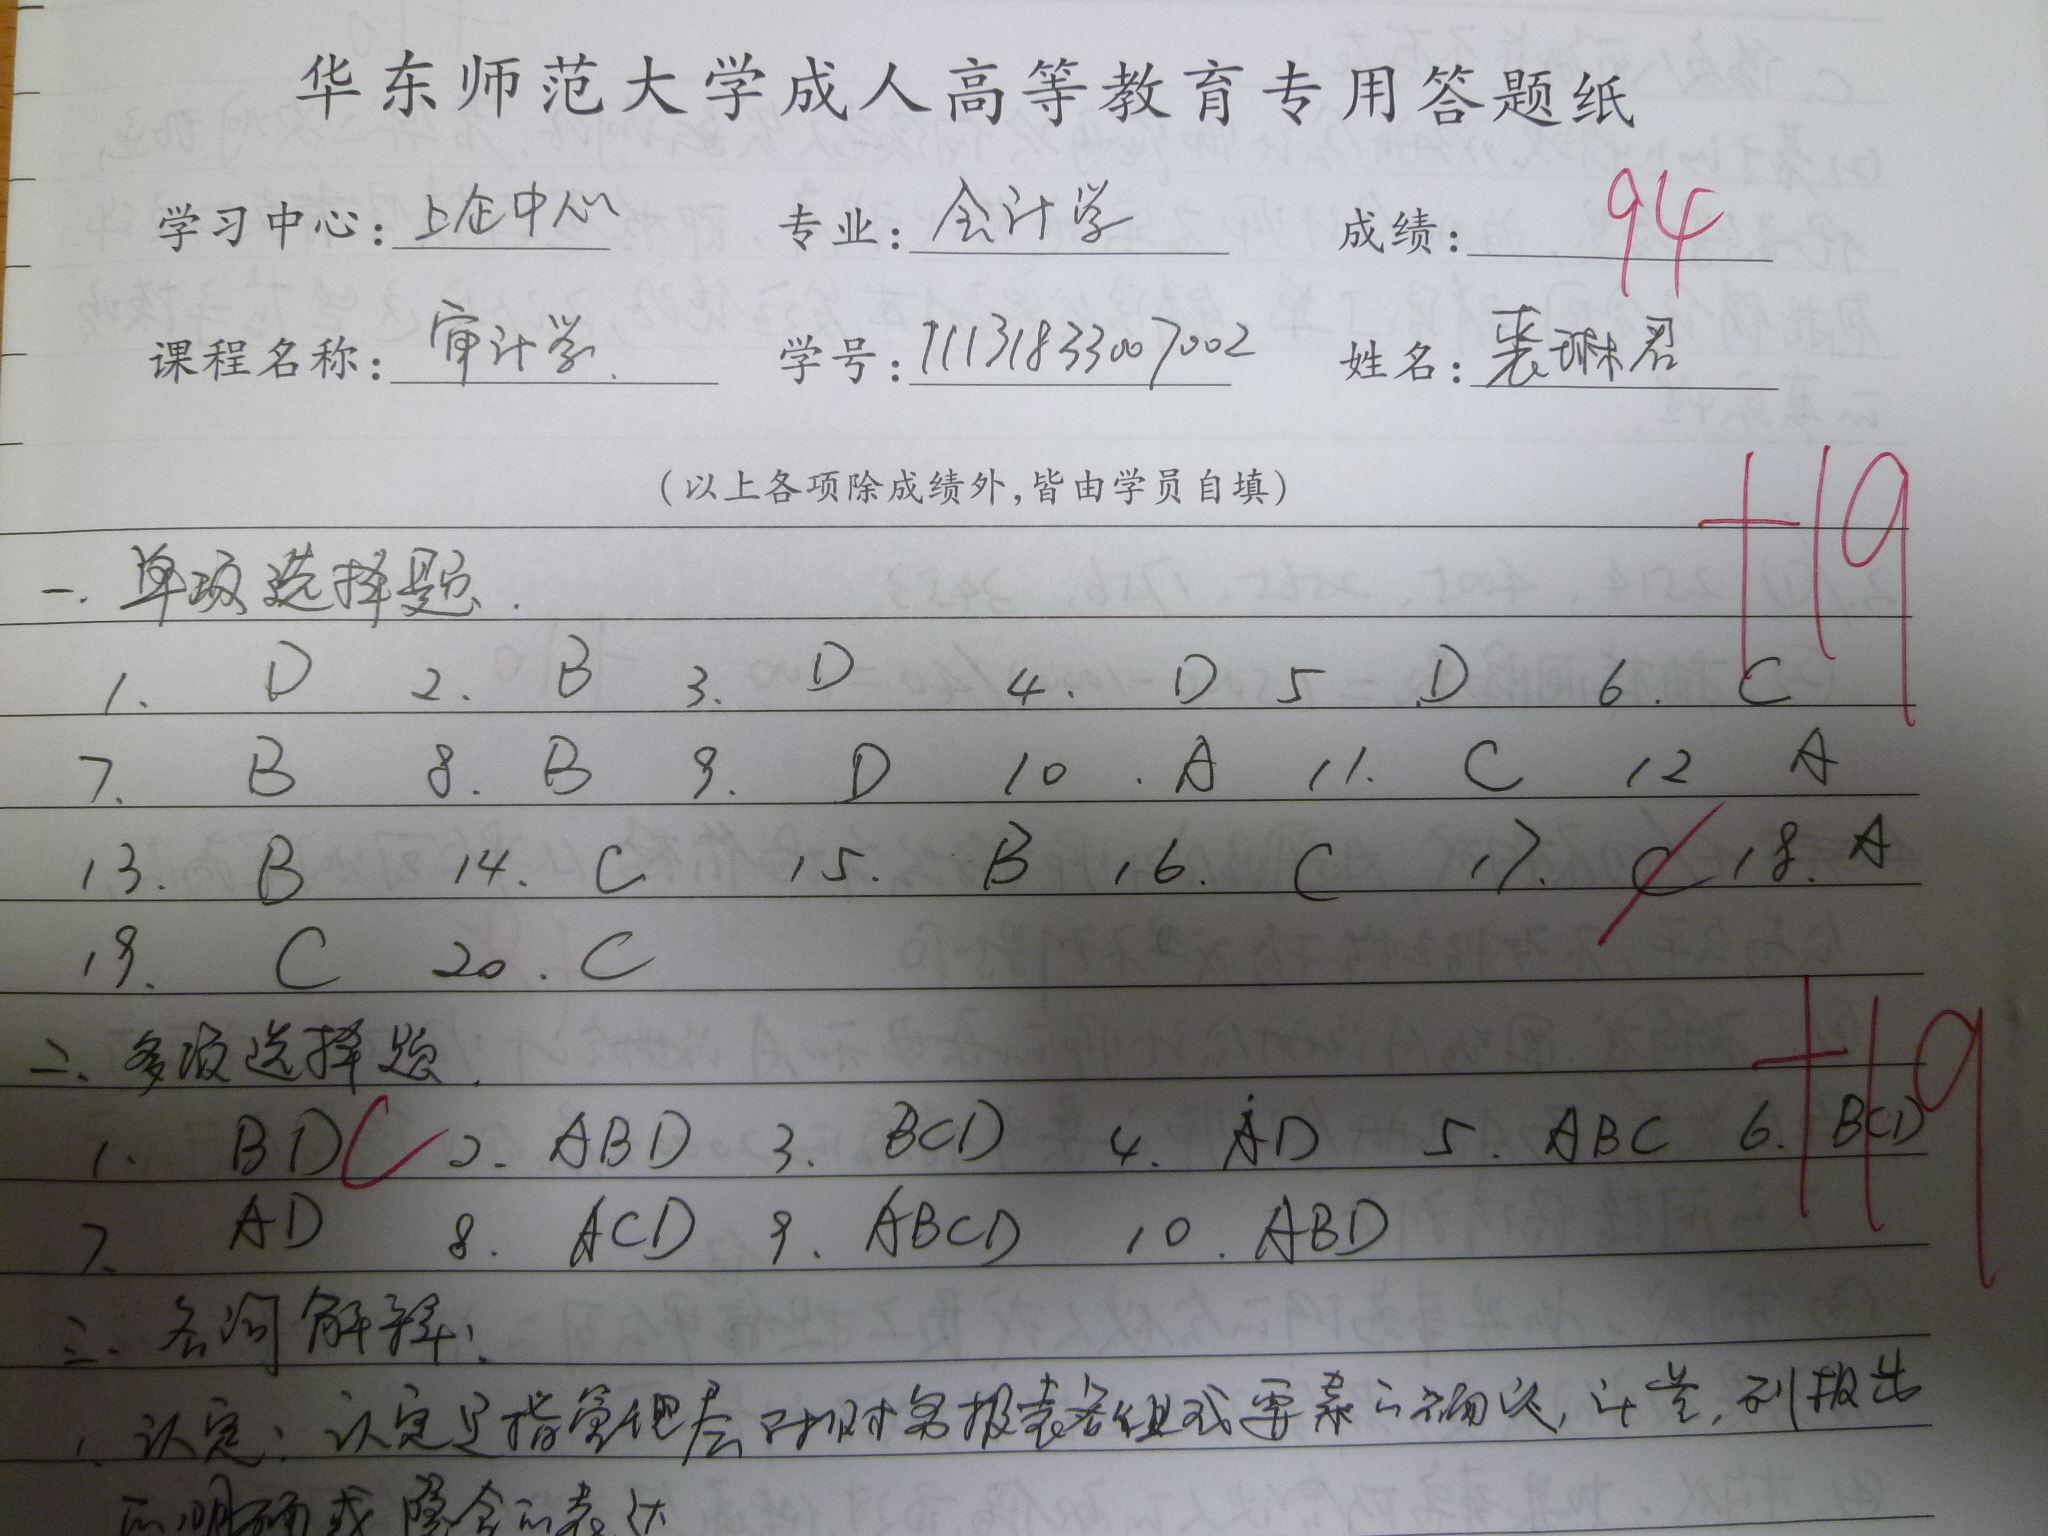 华东师范大学成人高等教育专用答题纸
学习中心: 上企中心 专业: 会计学 成绩: 94
课程名称: 审计学 学号: 71131833007002 姓名: 裘琳君
(以上各项除成绩外,皆由学员自填)
+19
一. 单项选择题.
1. D 2. B 3. D 4. D 5 D 6. C
7. B 8. B 9. D 10. A 11. C 12 A
13. B 14. C 15. B 16. C 17. C 18. A
19. C 20. C
二、多项选择题. +19
1. BDC 2. ABD 3. BCD 4. AD 5. ABC 6. BCD
7. AD 8. ACD 9. ABCD 10. ABD
三. 名词解释:
1. 认定: 认定是指管理层对财务报表各组成要素的确认, 计量, 列报出
的明确或隐含的表达